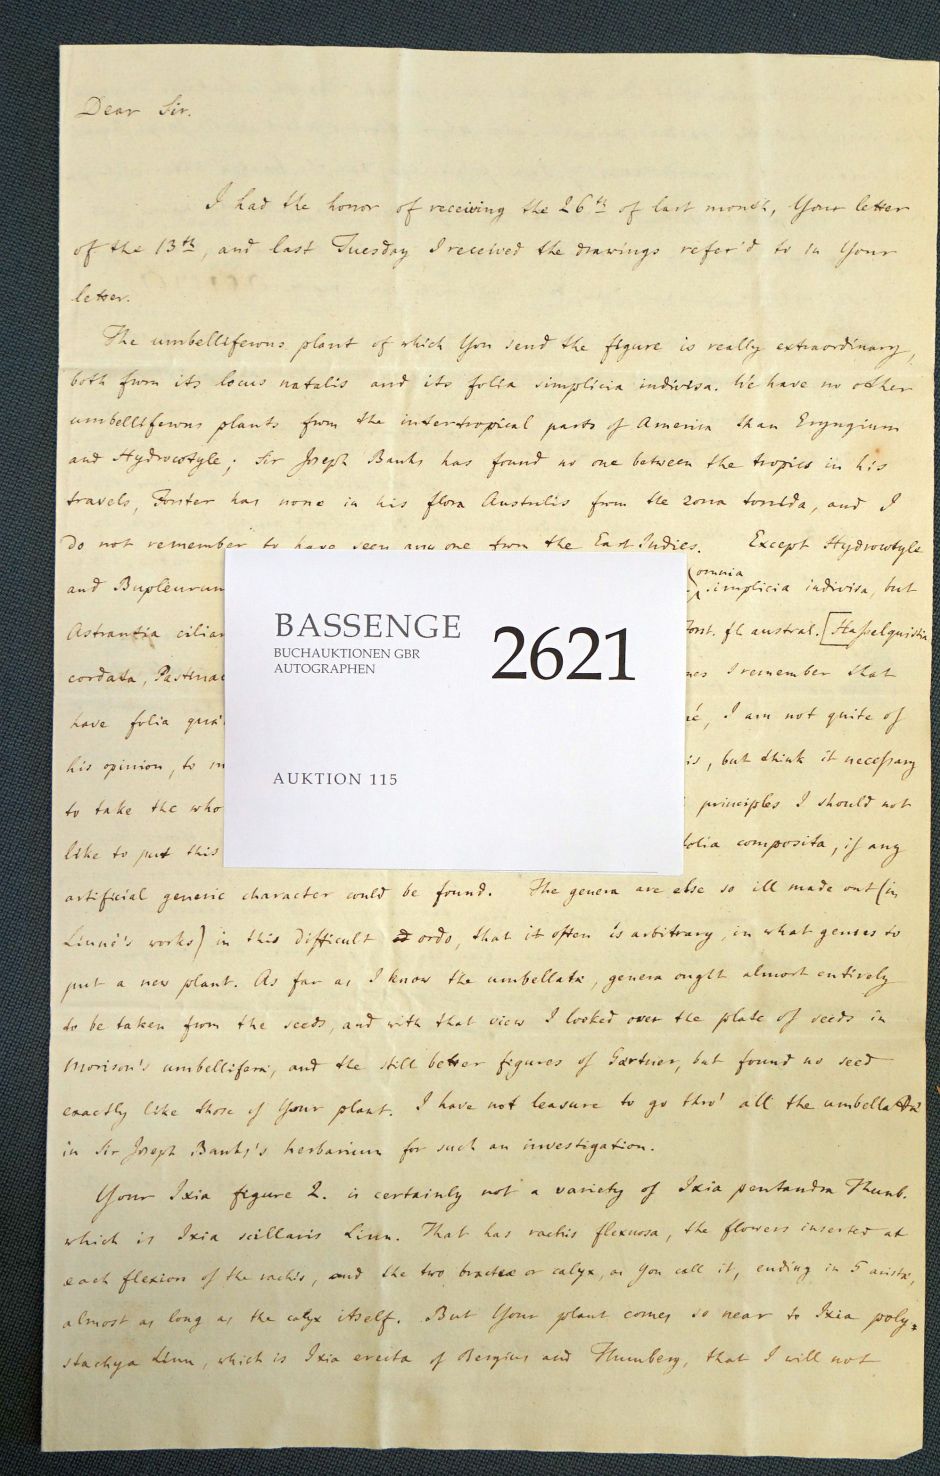 Dear Sir.
I had the honor of receiving the 26th of last month, Your letter
of the 13th, and last Tuesday I received the drawings refer'd to in Your
letter.
The umbelliferous plant of which You send the figure is really extraordinary,
both from its locus natalis and its folia simplicia indivisa. We have no other
umbelliferous plants from the intertropical parts of America than Eryngium
and Hydrocotyle; Sir Joseph Banks has found no one between the tropics in his
travels, Forster has none in his flora Australis from the zona torrida, and I
do not remember to have seen any one from the East Indies. Except Hydrocotyle
omnia
and Bupleurum simplicia indivisa, but
Astrantia ciliar Forst. fl. austral. [Hasselquistia
cordata, Pastinac I remember that
have folia I am not quite of
his opinion, to but think it necessary
to take the who principles I should not
like to put this folia composita, if any
artificial generic character could be found. The genera are else so ill made out (in
Linné's works) in this difficult ordo, that it often is arbitrary, in what genus to
put a new plant. As far as I know the umbellatæ, genera ought almost entirely
to be taken from the seeds, and with that view I looked over the plate of seeds in
Morison's umbelliferæ, and the still better figures of Gærtner, but found no seed
exactly like those of Your plant. I have not leasure to go thro' all the umbellatæ
in Sir Joseph Banks's herbarium for such an investigation.
Your Ixia figure 2. is certainly not a variety of Ixia pentandra Thunb.
which is Ixia scillaris Linn. That has rachis flexuosa, the flowers inserted at
each flexion of the rachis, and the two bracteæ or calyx, as You call it, ending in 5 aristæ,
almost as long as the calyx itself. But Your plant comes so near to Ixia poly=
stachya Linn, which is Ixia erecta of Bergius and Thunberg, that I will not
BASSENGE
BUCHAUKTIONEN GBR
AUTOGRAPHEN
2621
AUKTION 115